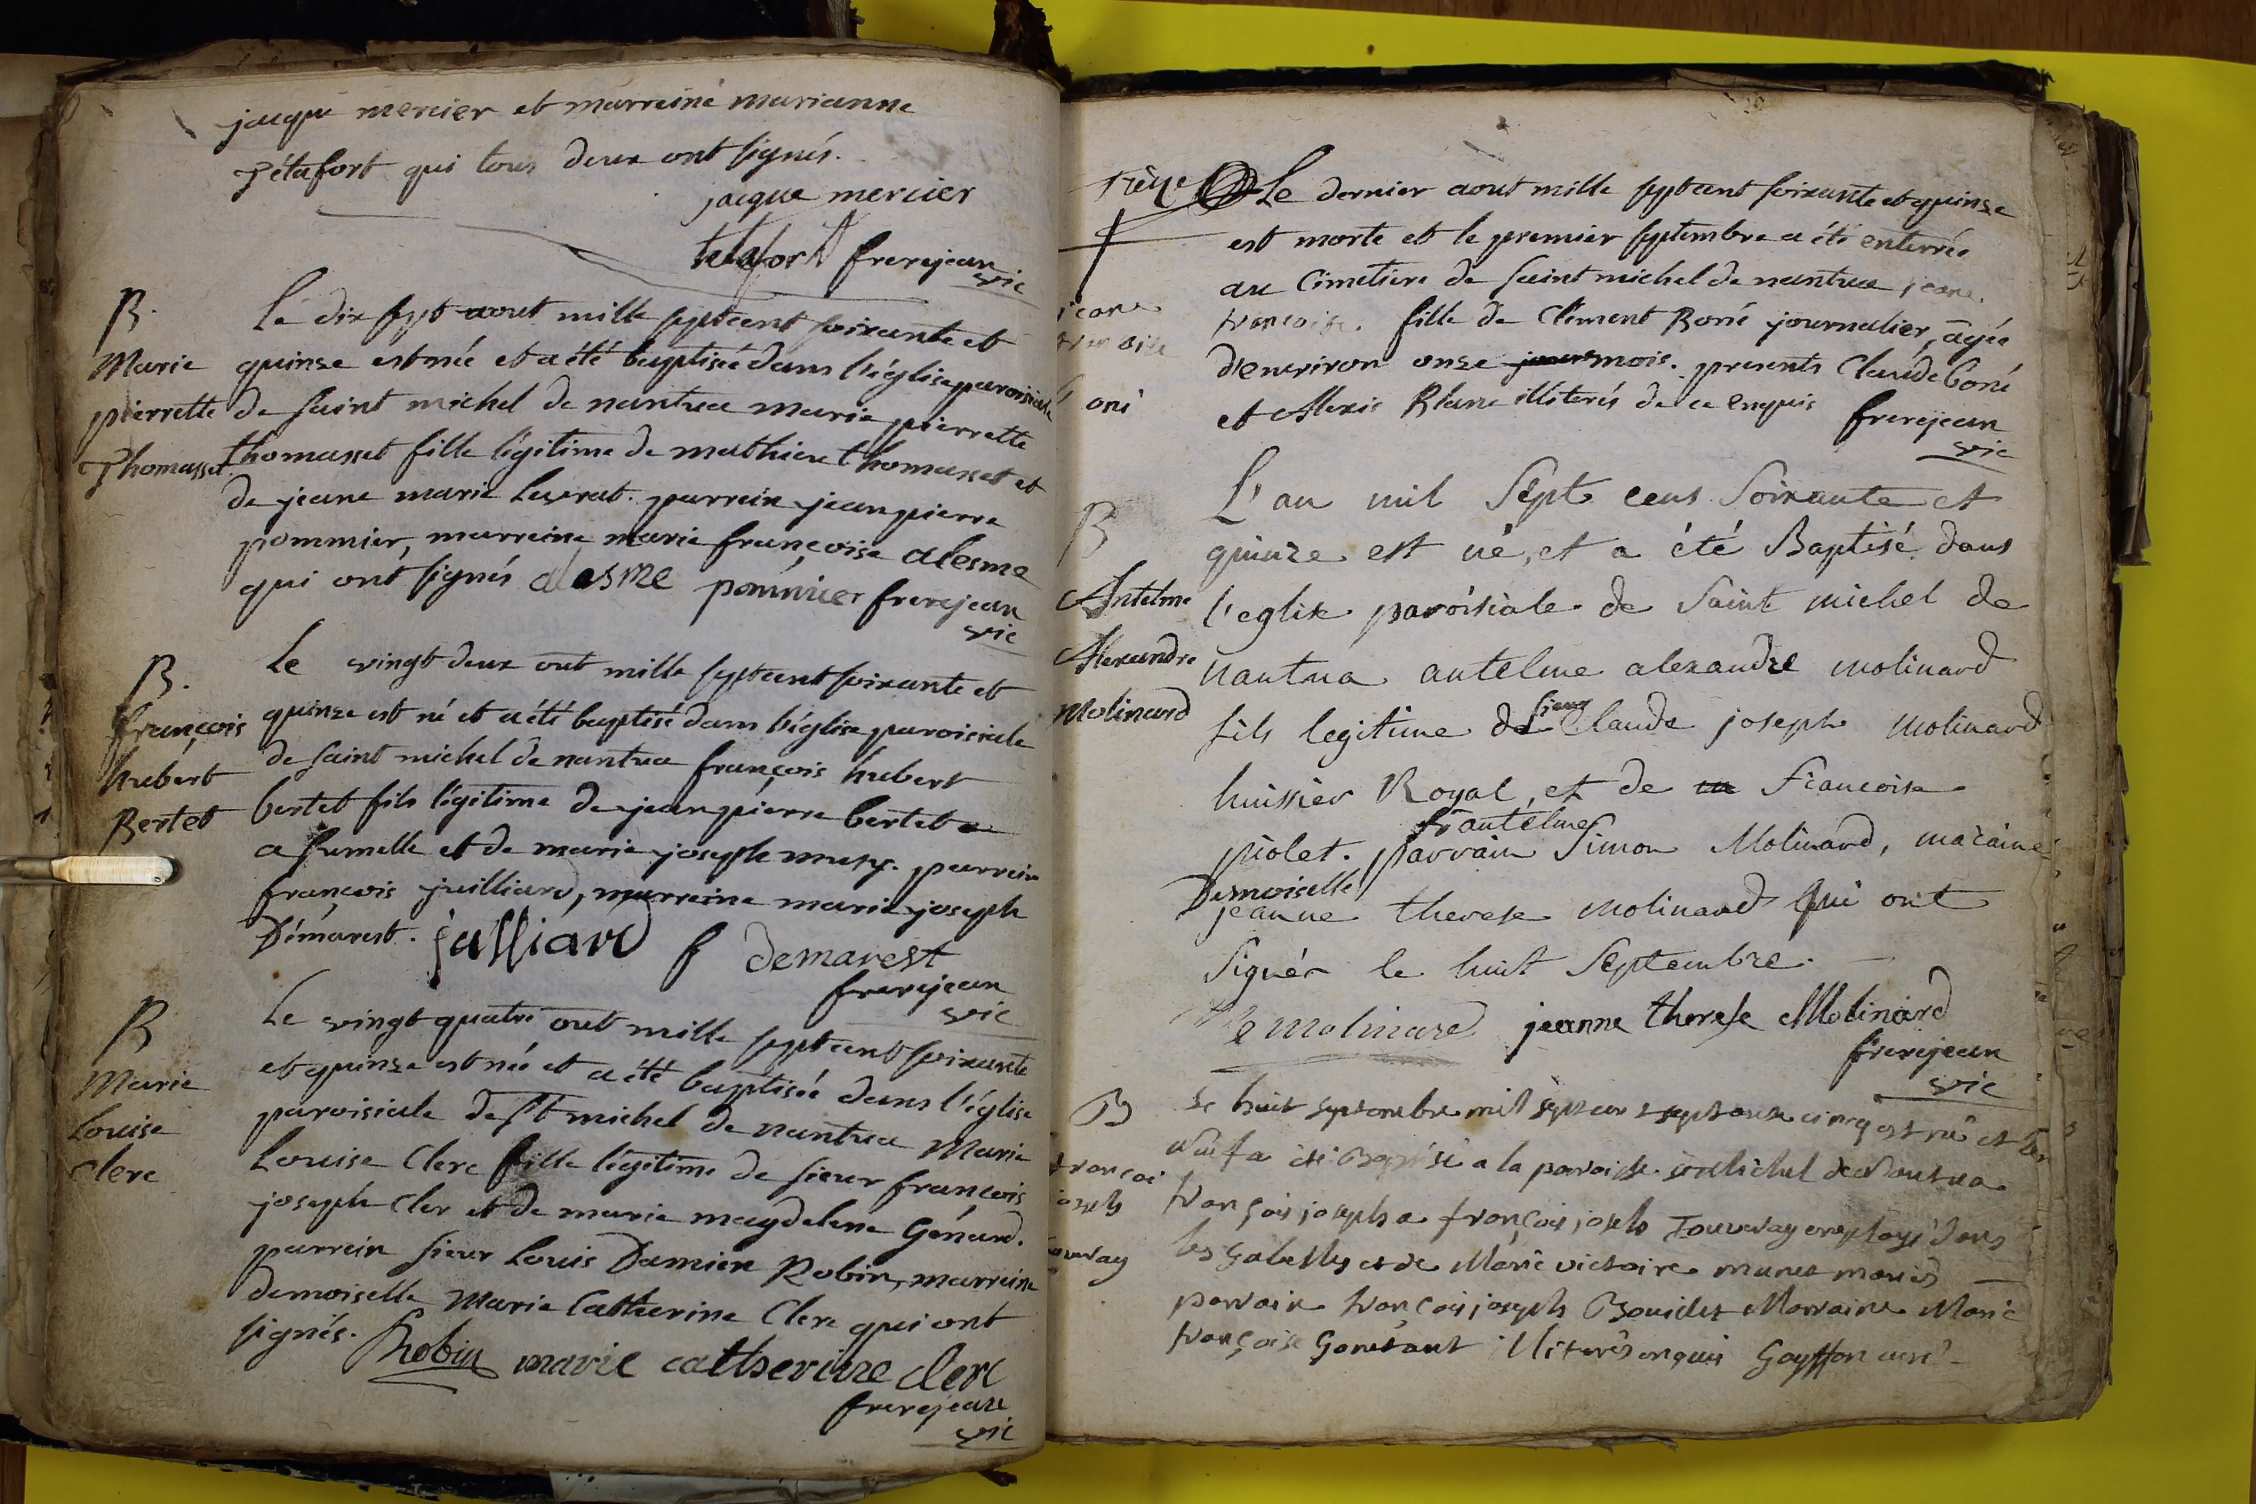 jacque mercier et marreine marianne
Tétafort qui tous deux ont signés.
jacque mercier
tetafort frerejean
vic
B.
Marie
pierrette
Thomasset
Le dix sept aout mille septcent soixante et
quinze est née et a été baptisée dans l'église paroisiale
de saint michel de nantua marie pierrette
thomasset fille légitime de mathieu thomasset et
de jeane marie Levrat. parrein jean pierre
pommier, marreine marie françoise alesme
qui ont signés alesme pommier frerejean
vic
B.
françois
hubert
Bertet
Le vingt deux out mille septcent soixante et
quinze est né et a été baptisé dans l'église paroisiale
de saint michel de nantua françois hubert
bertet fils légitime de jean pierre bertet
a fumelle et de marie joseph musy. parrein
françois juilliard, marreine marie joseph
Démarest. julliard f demarest
frerejean
vic
B
Marie
Louise
Clerc
Le vingt quatre out mille septcent soixante
et quinze est née et a été baptisée dans l'église
paroisiale de St michel de nantua Marie
Louise Clerc fille légitime de sieur françois
joseph Cler et de marie magdelene Génard.
parrein sieur Louis Damien Robin, marreine
demoiselle Marie Catherine Clerc qui ont
signés. Robin marie catherine clerc
frerejean
vic
jeane
boni
Le dernier aout mille septcent soixante et quinze
est morte et le premier septembre a été enterrée
au Cimetiere de saint michel de nantua jeane
françoise fille de Clément Boné journalier, agée
d'environ onze jours mois. presents Claude boné
et Alexis Blanc illiterés de ce enquis frerejean
vic
B
Antelme
Alexandre
Molinard
L'an mil Sept cens Soixante et
quinze est né, et a été Baptisé dans
l'eglise paroisiale de Saint michel de
nantua antelme alexandre molinard
fils legitime de sieur Claude joseph molinard
huissier Royal, et de françoise
piolet. parrain Sr antelme Simon Molinard, maraine
Demoiselle
jeanne therese molinard qui ont
Signés le huit Septembre.
molinard jeanne therese Molinard
frerejean
vic
B
françoi
joseph
Le huit septembre mil sept cent septante cinq est né et le
neuf a été Baptisé a la paroisse st Michel de Nantua
françois joseph a françois joseph Touvray employé dans
les Gabelles et de Marie victoire munet mariés
parrain françois joseph Bouilet Marraine Marie
françoise Gonétant illiterés enquis Gayffon curé